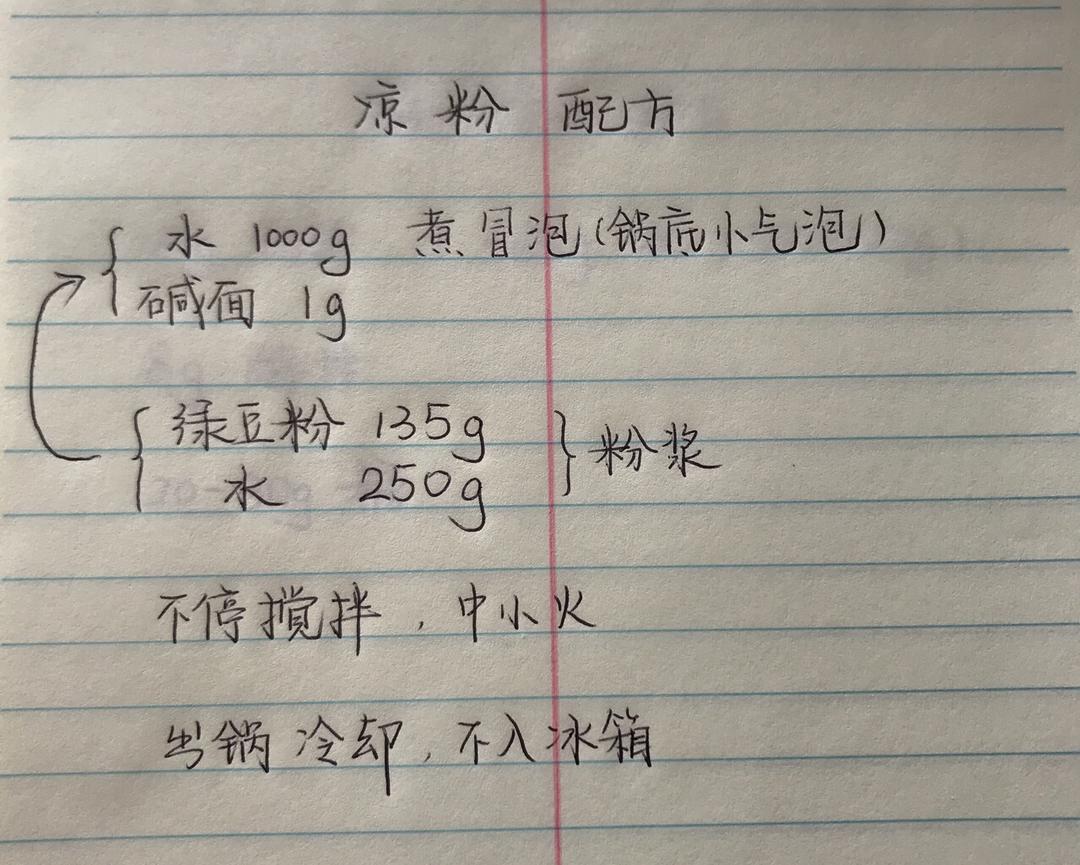 凉粉 配方
水 1000g 煮冒泡(锅底小气泡)
碱面 1g
绿豆粉 135g
水 250g
粉浆
不停搅拌,中小火
出锅冷却,不入冰箱